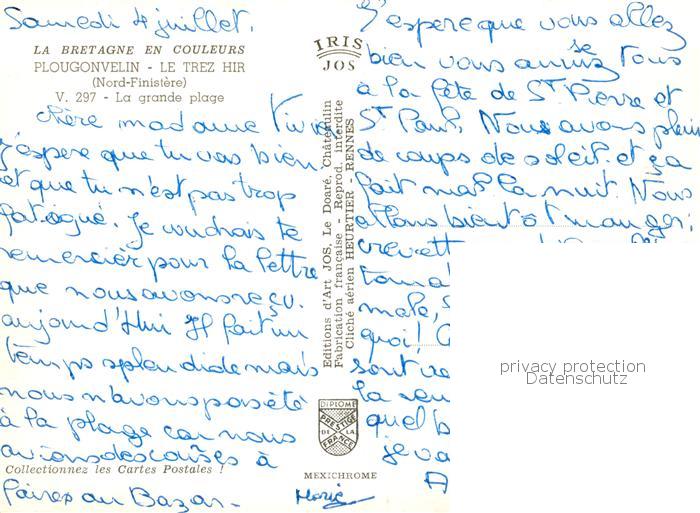 Samedi 4 juillet.
LA BRETAGNE EN COULEURS
PLOUGONVELIN - LE TREZ HIR
(Nord-Finistère)
V. 297 - La grande plage
chère madame
J'espere que tu vas bien
et que tu n'est pas trop
fatigué. Je voudrais te
remercier pour la lettre
que nous avons reçu.
aujourd'Hui Il fait un
temps splendide mais
nous n'avons pas été
à la plage car nous
avions des courses à
faires au Bazar.
Collectionnez les Cartes Postales !
IRIS
JOS
Editions d'Art JOS, Le Doaré, Châteaulin
Fabrication française - Reprod. interdite
Cliché aérien HEURTIER - RENNES
DIPLOME
PRESTIGE
DE LA
FRANCE
MEXICHROME
J'espere que vous allez
bien vous amusez tous
à la fête de St Pierre et
St Paul. Nous avons plein
de coups de soleil. et ça
fait mal la nuit. Nous
allons bientôt manger.
crevett
toma
quoi!
sont
la
quel
je va
A
privacy protection
Datenschutz